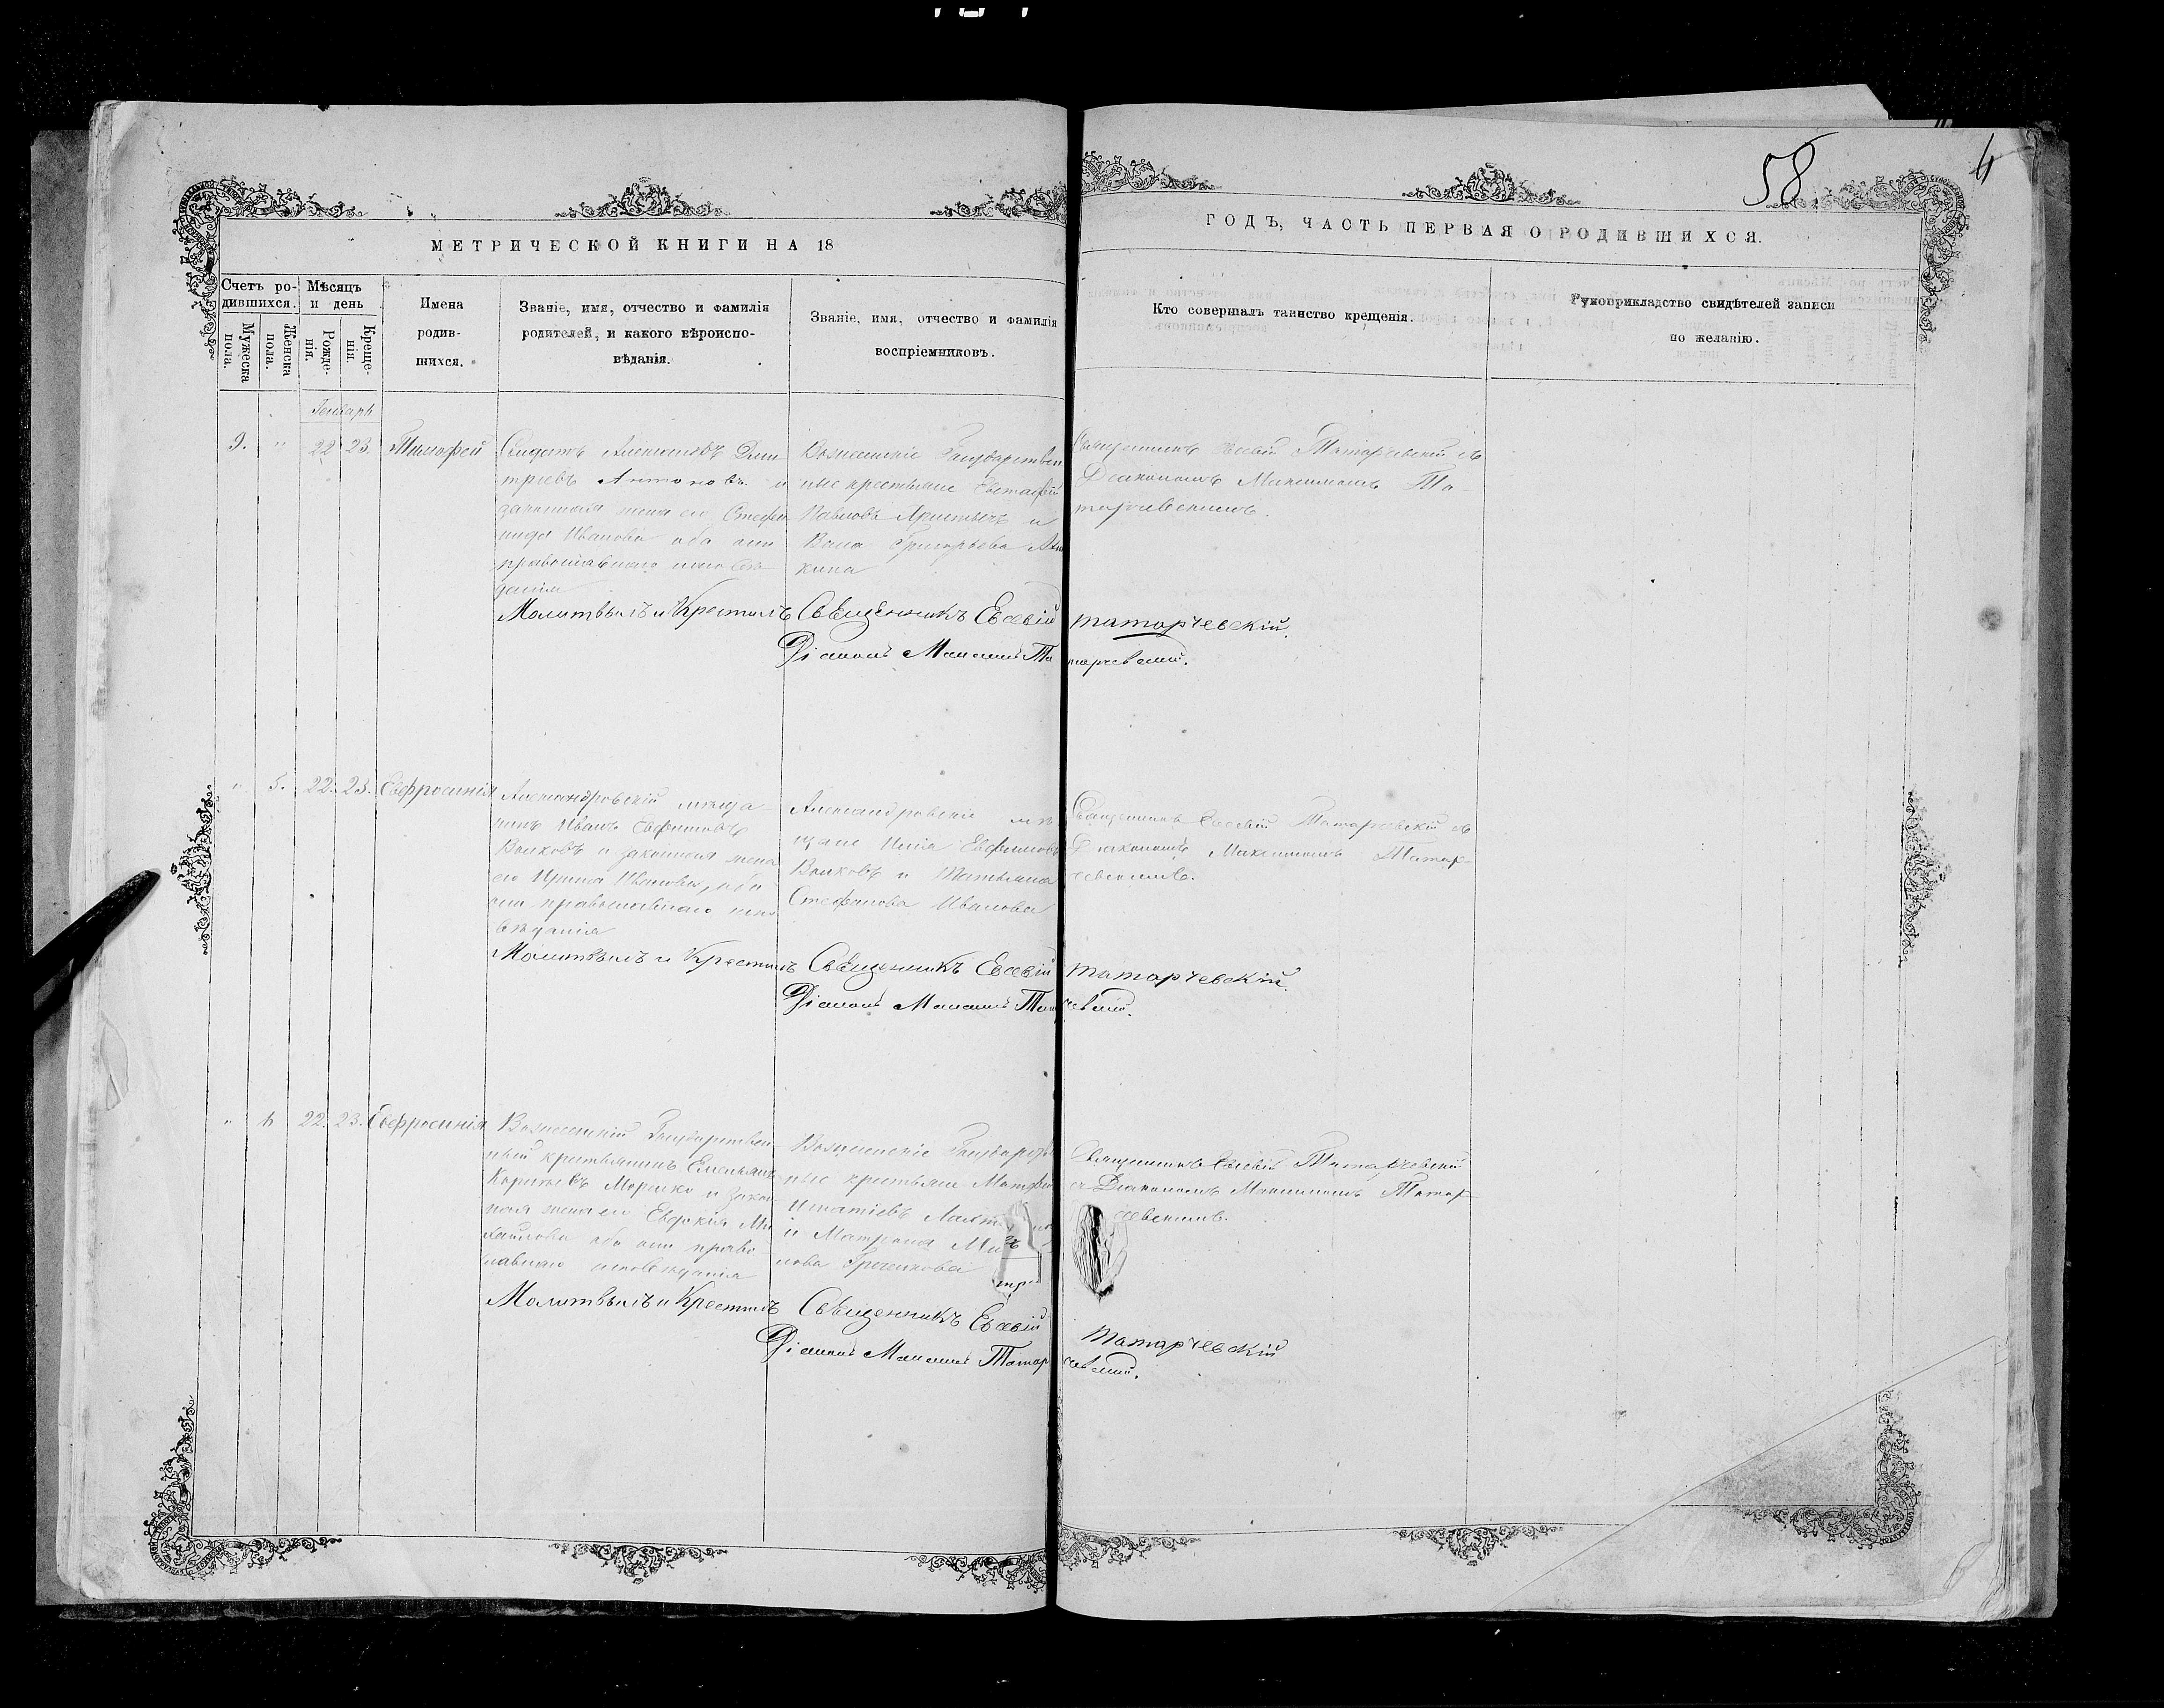 58
МЕТРИЧЕСКОЙ КНИГИ НА 18
ГОДЪ, ЧАСТЬ ПЕРВАЯ О РОДИВШИХСЯ.
Счетъ ро-
дившихся.
Мужеска
пола.
Женска
пола.
Мѣсяцъ
и день
Рожде-
нія.
Креще-
нія.
Имена
родив-
шихся.
Званіе, имя, отчество и фамилія
родителей, и какого вѣроиспо-
вѣданія.
Званіе, имя, отчество и фамилія
воспріемниковъ.
Кто совершалъ таинство крещенія.
Рукоприкладство свидѣтелей записи
по желанію.
9. " 22 23. Тимофей
Солдатъ Дми
тріевъ Антоновъ и
законная жена его Стефа
нида Иванова оба они
православнаго исповѣ
данія
Вознесенскіе Государствен
ные крестьяне Евстафій
Павловъ и
Григорьева
кина
Священникъ Евсевій Татарчевскій съ
Діакономъ Максимомъ Та-
тарчевскимъ.
Молитвилъ и Крестилъ Священникъ Евсевій Татарчевскій.
Діаконъ Максимъ Татарчевскій.
" 5. 22. 23. Евфросинія
Александровскій мѣща
нинъ Иванъ Евфимовъ
Волковъ и законная жена
его Ирина Иванова, оба
они православнаго испо
вѣданія
Александровскіе мѣ
щане Илія Евфимовъ
Волковъ и Татьяна
Стефанова Иванова
Священникъ Евсевій Татарчевскій съ
Діакономъ Максимомъ Татар-
чевскимъ.
Молитвилъ и Крестилъ Священникъ Евсевій Татарчевскій.
Діаконъ Максимъ Татарчевскій.
" 6 22. 23. Евфросинія
Вознесенскій Государствен-
ный крестьянинъ Емельянъ
Марченко и закон
ная жена его Евдокія Ми
хайлова оба они право
славнаго исповѣданія
Вознесенскіе Государств
ные крестьяне Матфей
Игнатіевъ
и Матрона
лова Гречешкова
Священникъ Евсевій Татарчевскій
съ Діакономъ Максимомъ Татар-
чевскимъ.
Молитвилъ и Крестилъ Священникъ Евсевій Татарчевскій
Діаконъ Максимъ Татарчевскій.